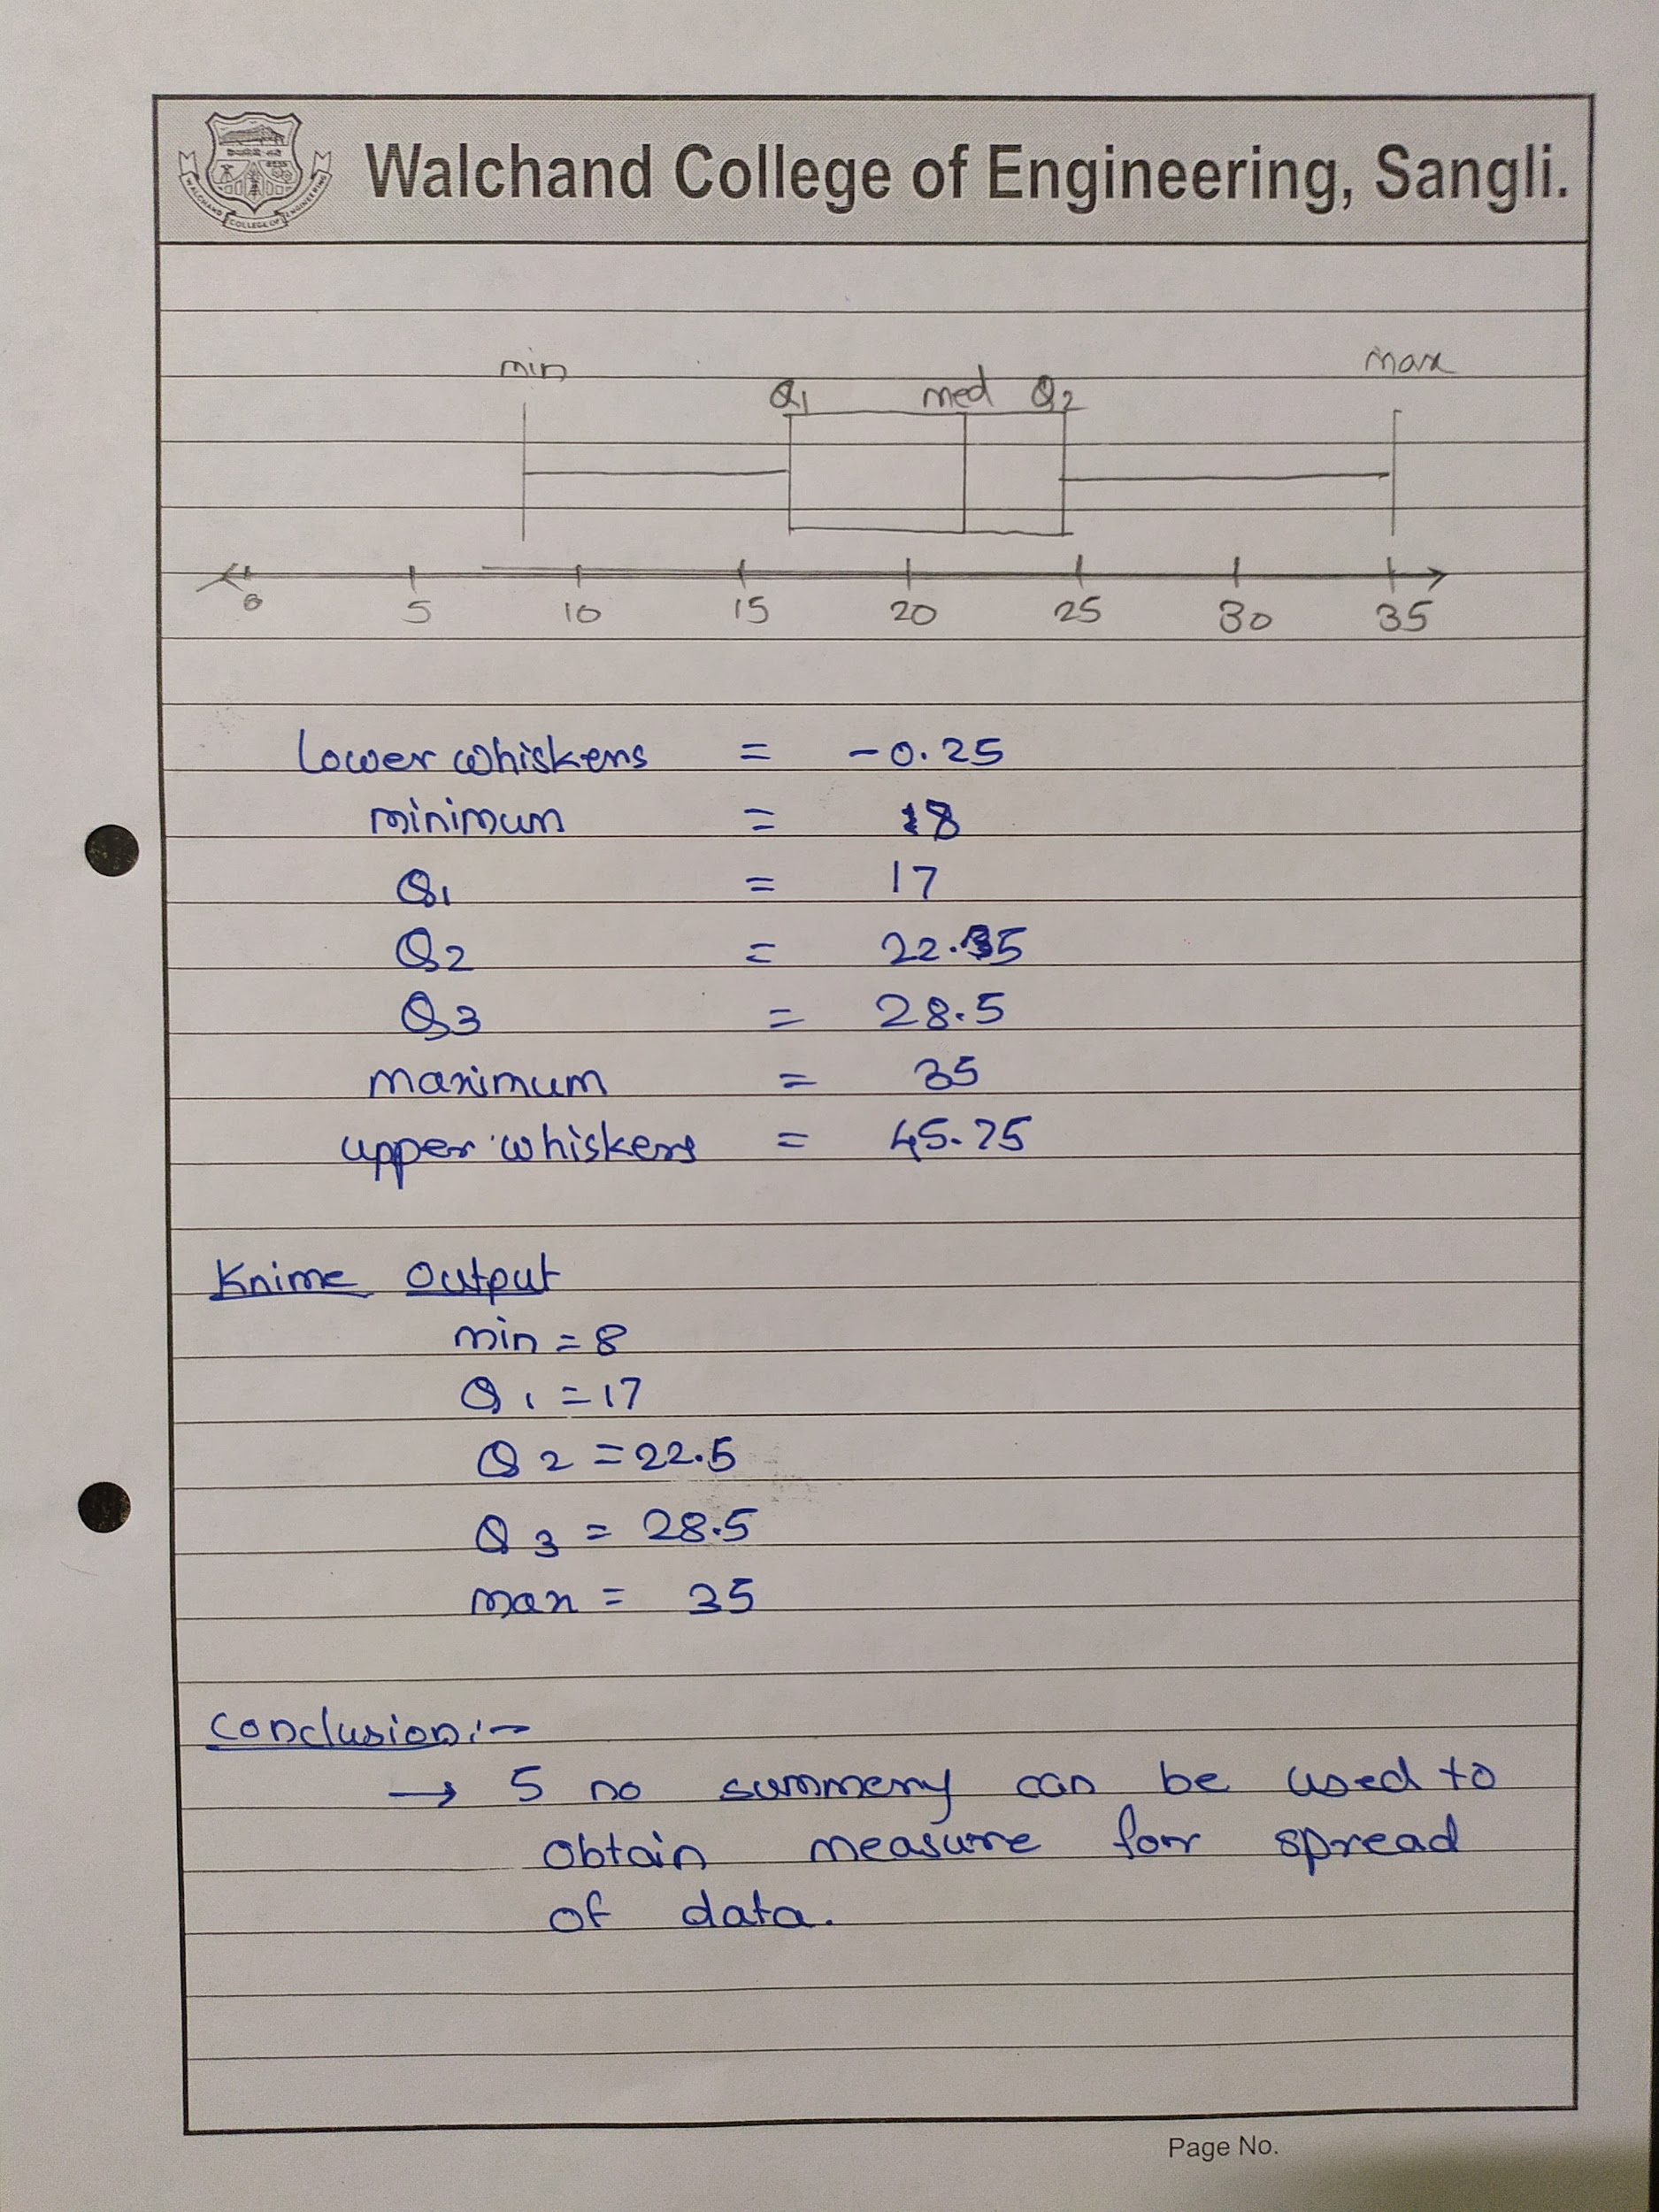 Walchand College of Engineering, Sangli.
WALCHAND COLLEGE OF ENGINEERING
min max
Q1 med Q2
0 5 10 15 20 25 30 35
Lower whiskers = -0.25
minimum = 8
Q1 = 17
Q2 = 22.5
Q3 = 28.5
maximum = 35
upper whiskers = 45.75
Knime Output
min = 8
Q1 = 17
Q2 = 22.5
Q3 = 28.5
max = 35
Conclusion:-
→ 5 no summery can be used to
obtain measure for spread
of data.
Page No.